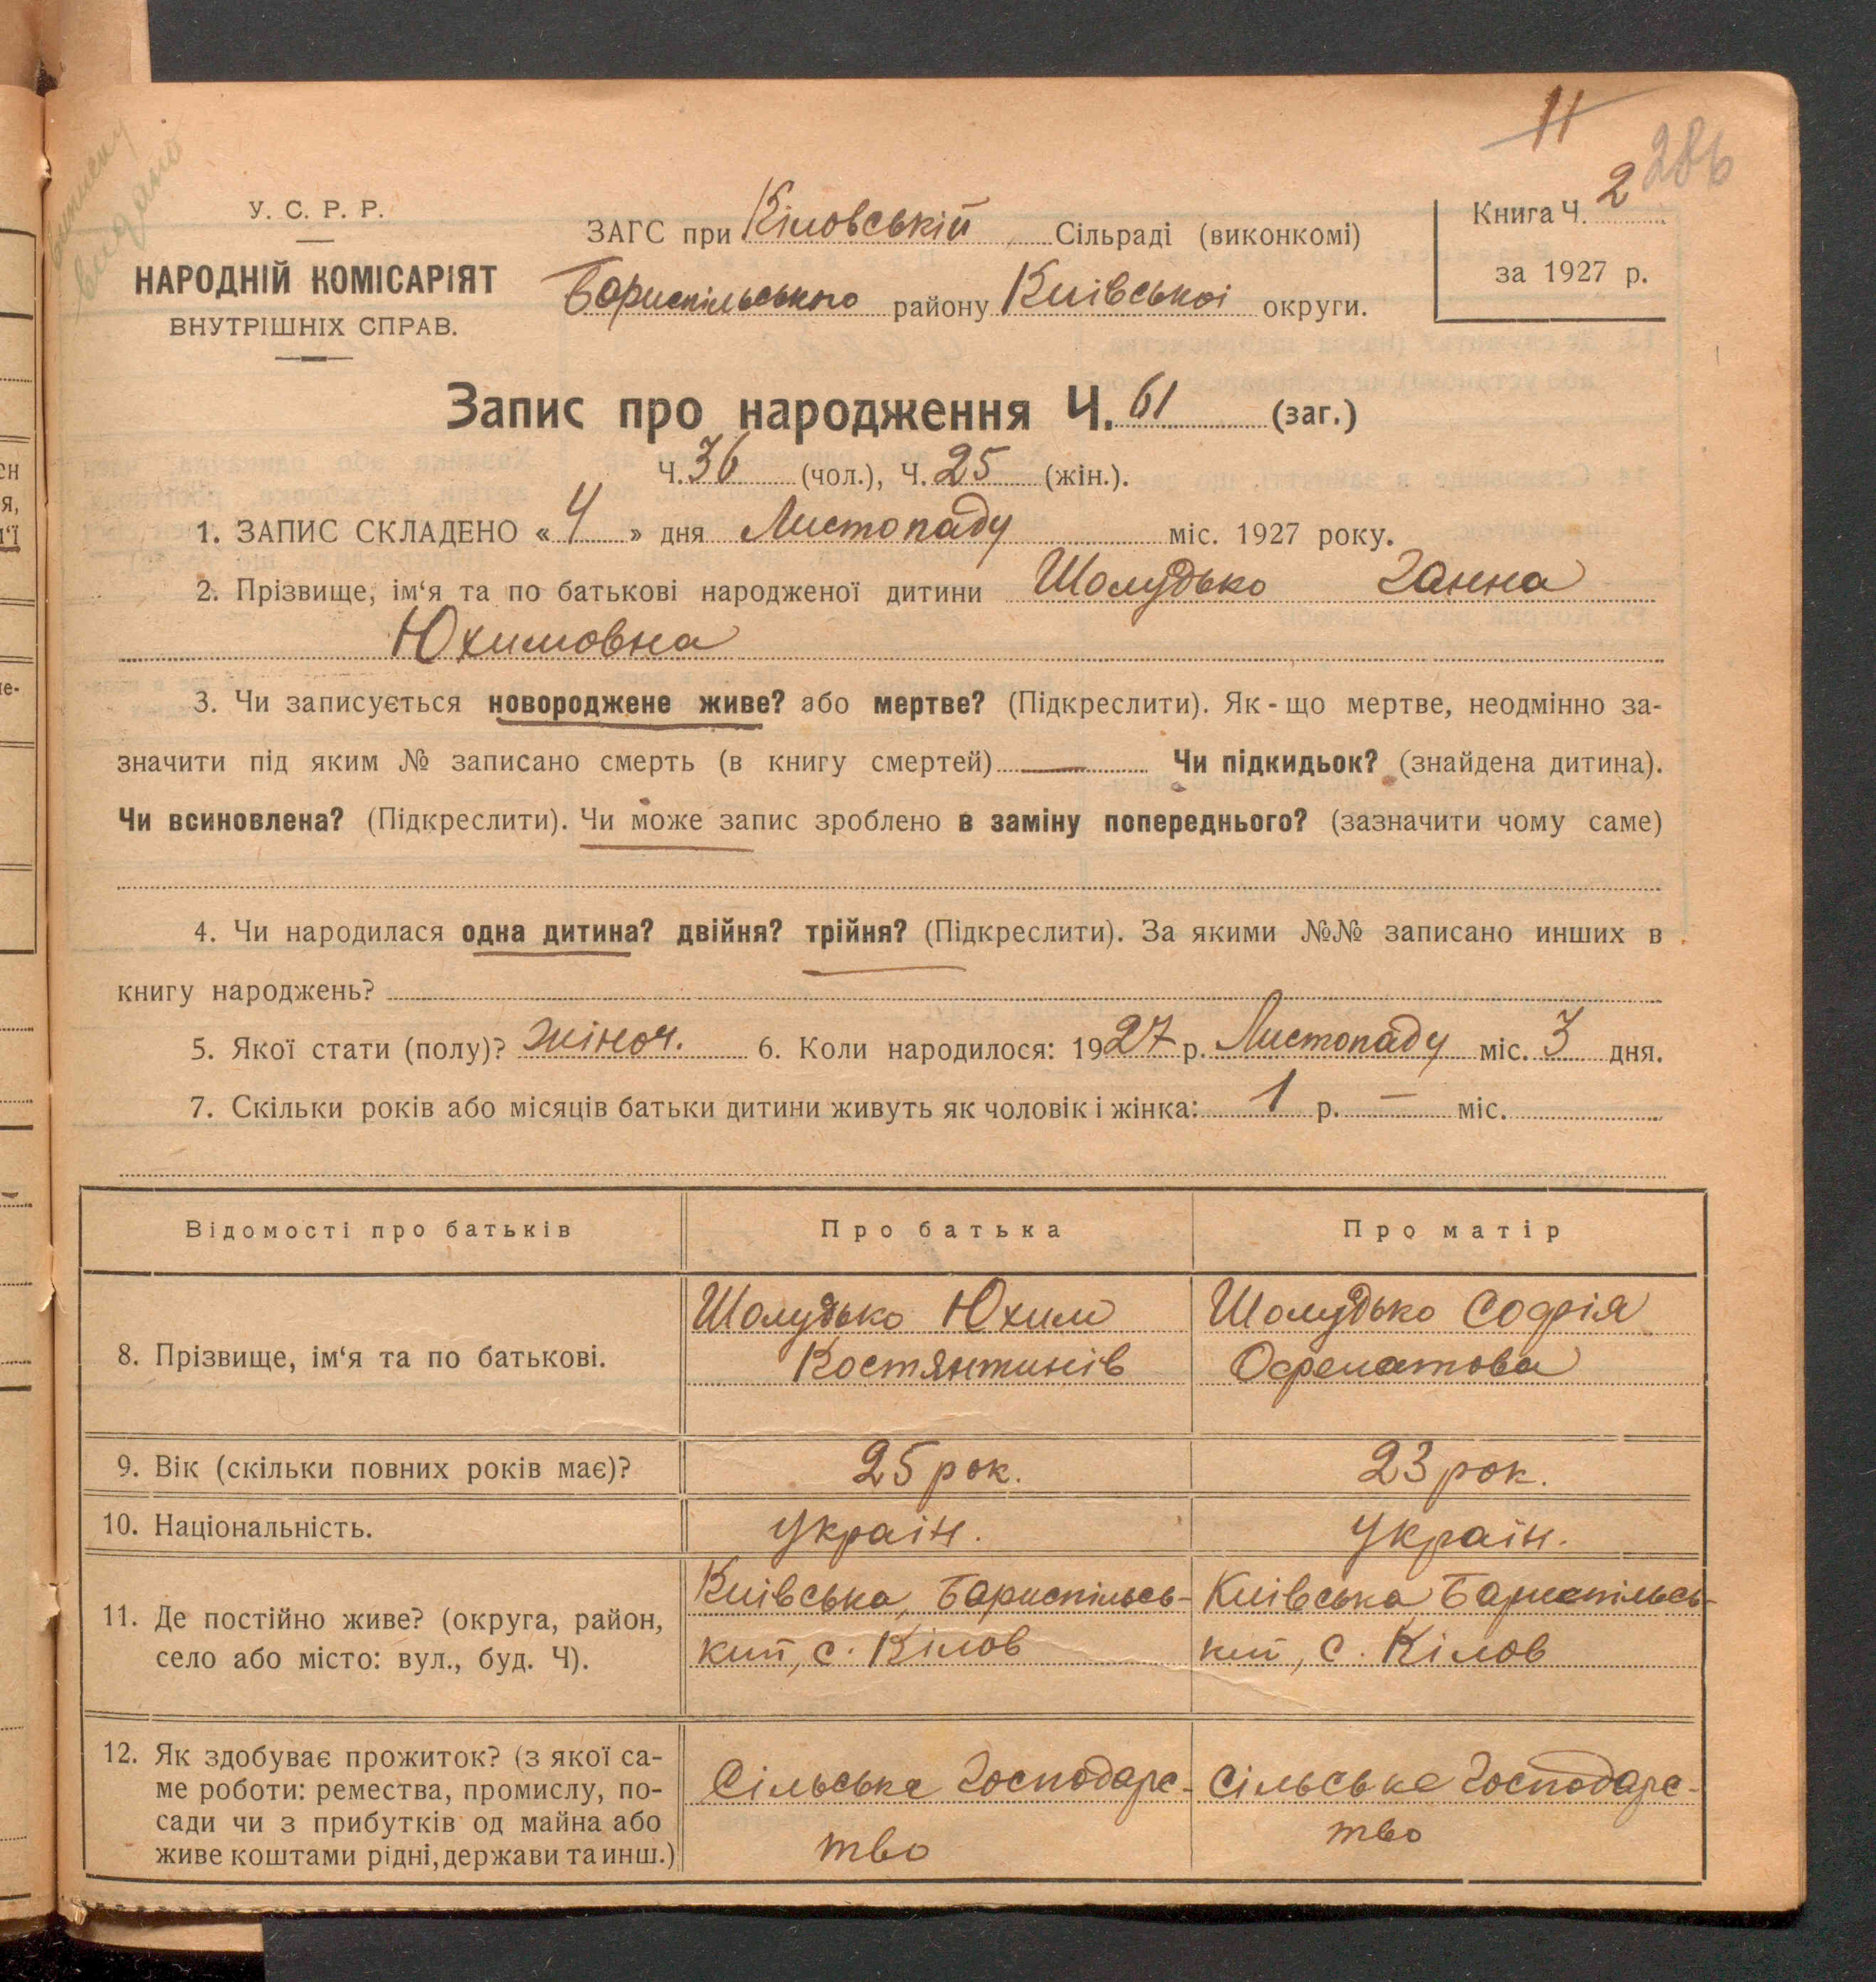 11
286
виписку
видано
У. С. Р. Р.
НАРОДНІЙ КОМІСАРІЯТ
ВНУТРІШНІХ СПРАВ.
ЗАГС при Кіловській Сільраді (виконкомі)
Бориспільського району Київської округи.
Книга Ч. 2
за 1927 р.
Запис про народження Ч. 61 (заг.)
Ч. 36 (чол.), Ч. 25 (жін.).
1. ЗАПИС СКЛАДЕНО « 4 » дня Листопаду міс. 1927 року.
2. Прізвище, ім‘я та по батькові народженої дитини Шолудько Ганна
Юхимовна
3. Чи записується новороджене живе? або мертве? (Підкреслити). Як-що мертве, неодмінно за-
значити під яким № записано смерть (в книгу смертей) — Чи підкидьок? (знайдена дитина).
Чи всиновлена? (Підкреслити). Чи може запис зроблено в заміну попереднього? (зазначити чому саме)
4. Чи народилася одна дитина? двійня? трійня? (Підкреслити). За якими №№ записано инших в
книгу народжень?
5. Якої стати (полу)? жіноч. 6. Коли народилося: 1927 р. Листопаду міс. 3 дня.
7. Скільки років або місяців батьки дитини живуть як чоловік і жінка: 1 р. — міс.
Відомості про батьків Про батька Про матір
8. Прізвище, ім‘я та по батькові.
Шолудько Юхим
Костянтинів
Шолудько Софія
9. Вік (скільки повних років має)? 25 рок. 23 рок.
10. Національність. Украін. Украін.
11. Де постійно живе? (округа, район,
село або місто: вул., буд. Ч).
Киівська, Бориспільсь-
кий, с. Кілов
Киівська Бориспільсь-
кий, с. Кілов
12. Як здобуває прожиток? (з якої са-
ме роботи: ремества, промислу, по-
сади чи з прибутків од майна або
живе коштами рідні, держави та инш.)
Сільське Господарс-
тво
Сільське Господарс-
тво